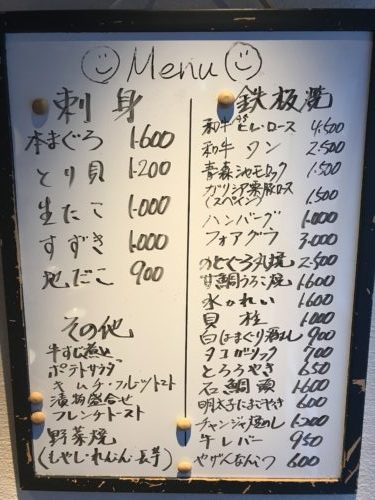 Menu
刺身
本まぐろ 1.600
とり貝 1.200
生たこ 1.000
すずき 1.000
地だこ 900
その他
牛すじ煮込
ポテトサラダ
キムチ・フルーツトマト
漬物盛合せ
フレンチトースト
野菜焼
(もやし・れんこん・長芋)
鉄板焼
和牛ヒレ・ロース 4.500
和牛 タン 2.500
青森シャモロック 1.500
ガリシア栗豚ロース
(スペイン) 1.500
ハンバーグ 1.000
フォアグラ 3.000
のどぐろ丸焼 2.500
甘鯛うろこ焼 1.600
水かれい 1.600
貝柱 1.000
白はまぐり酒むし 900
タコガーリック 700
とろろやき 650
石鯛頭 1.600
明太子たまごやき 600
チャンジャ焼めし 1.200
牛レバー 950
やげんなんこつ 600